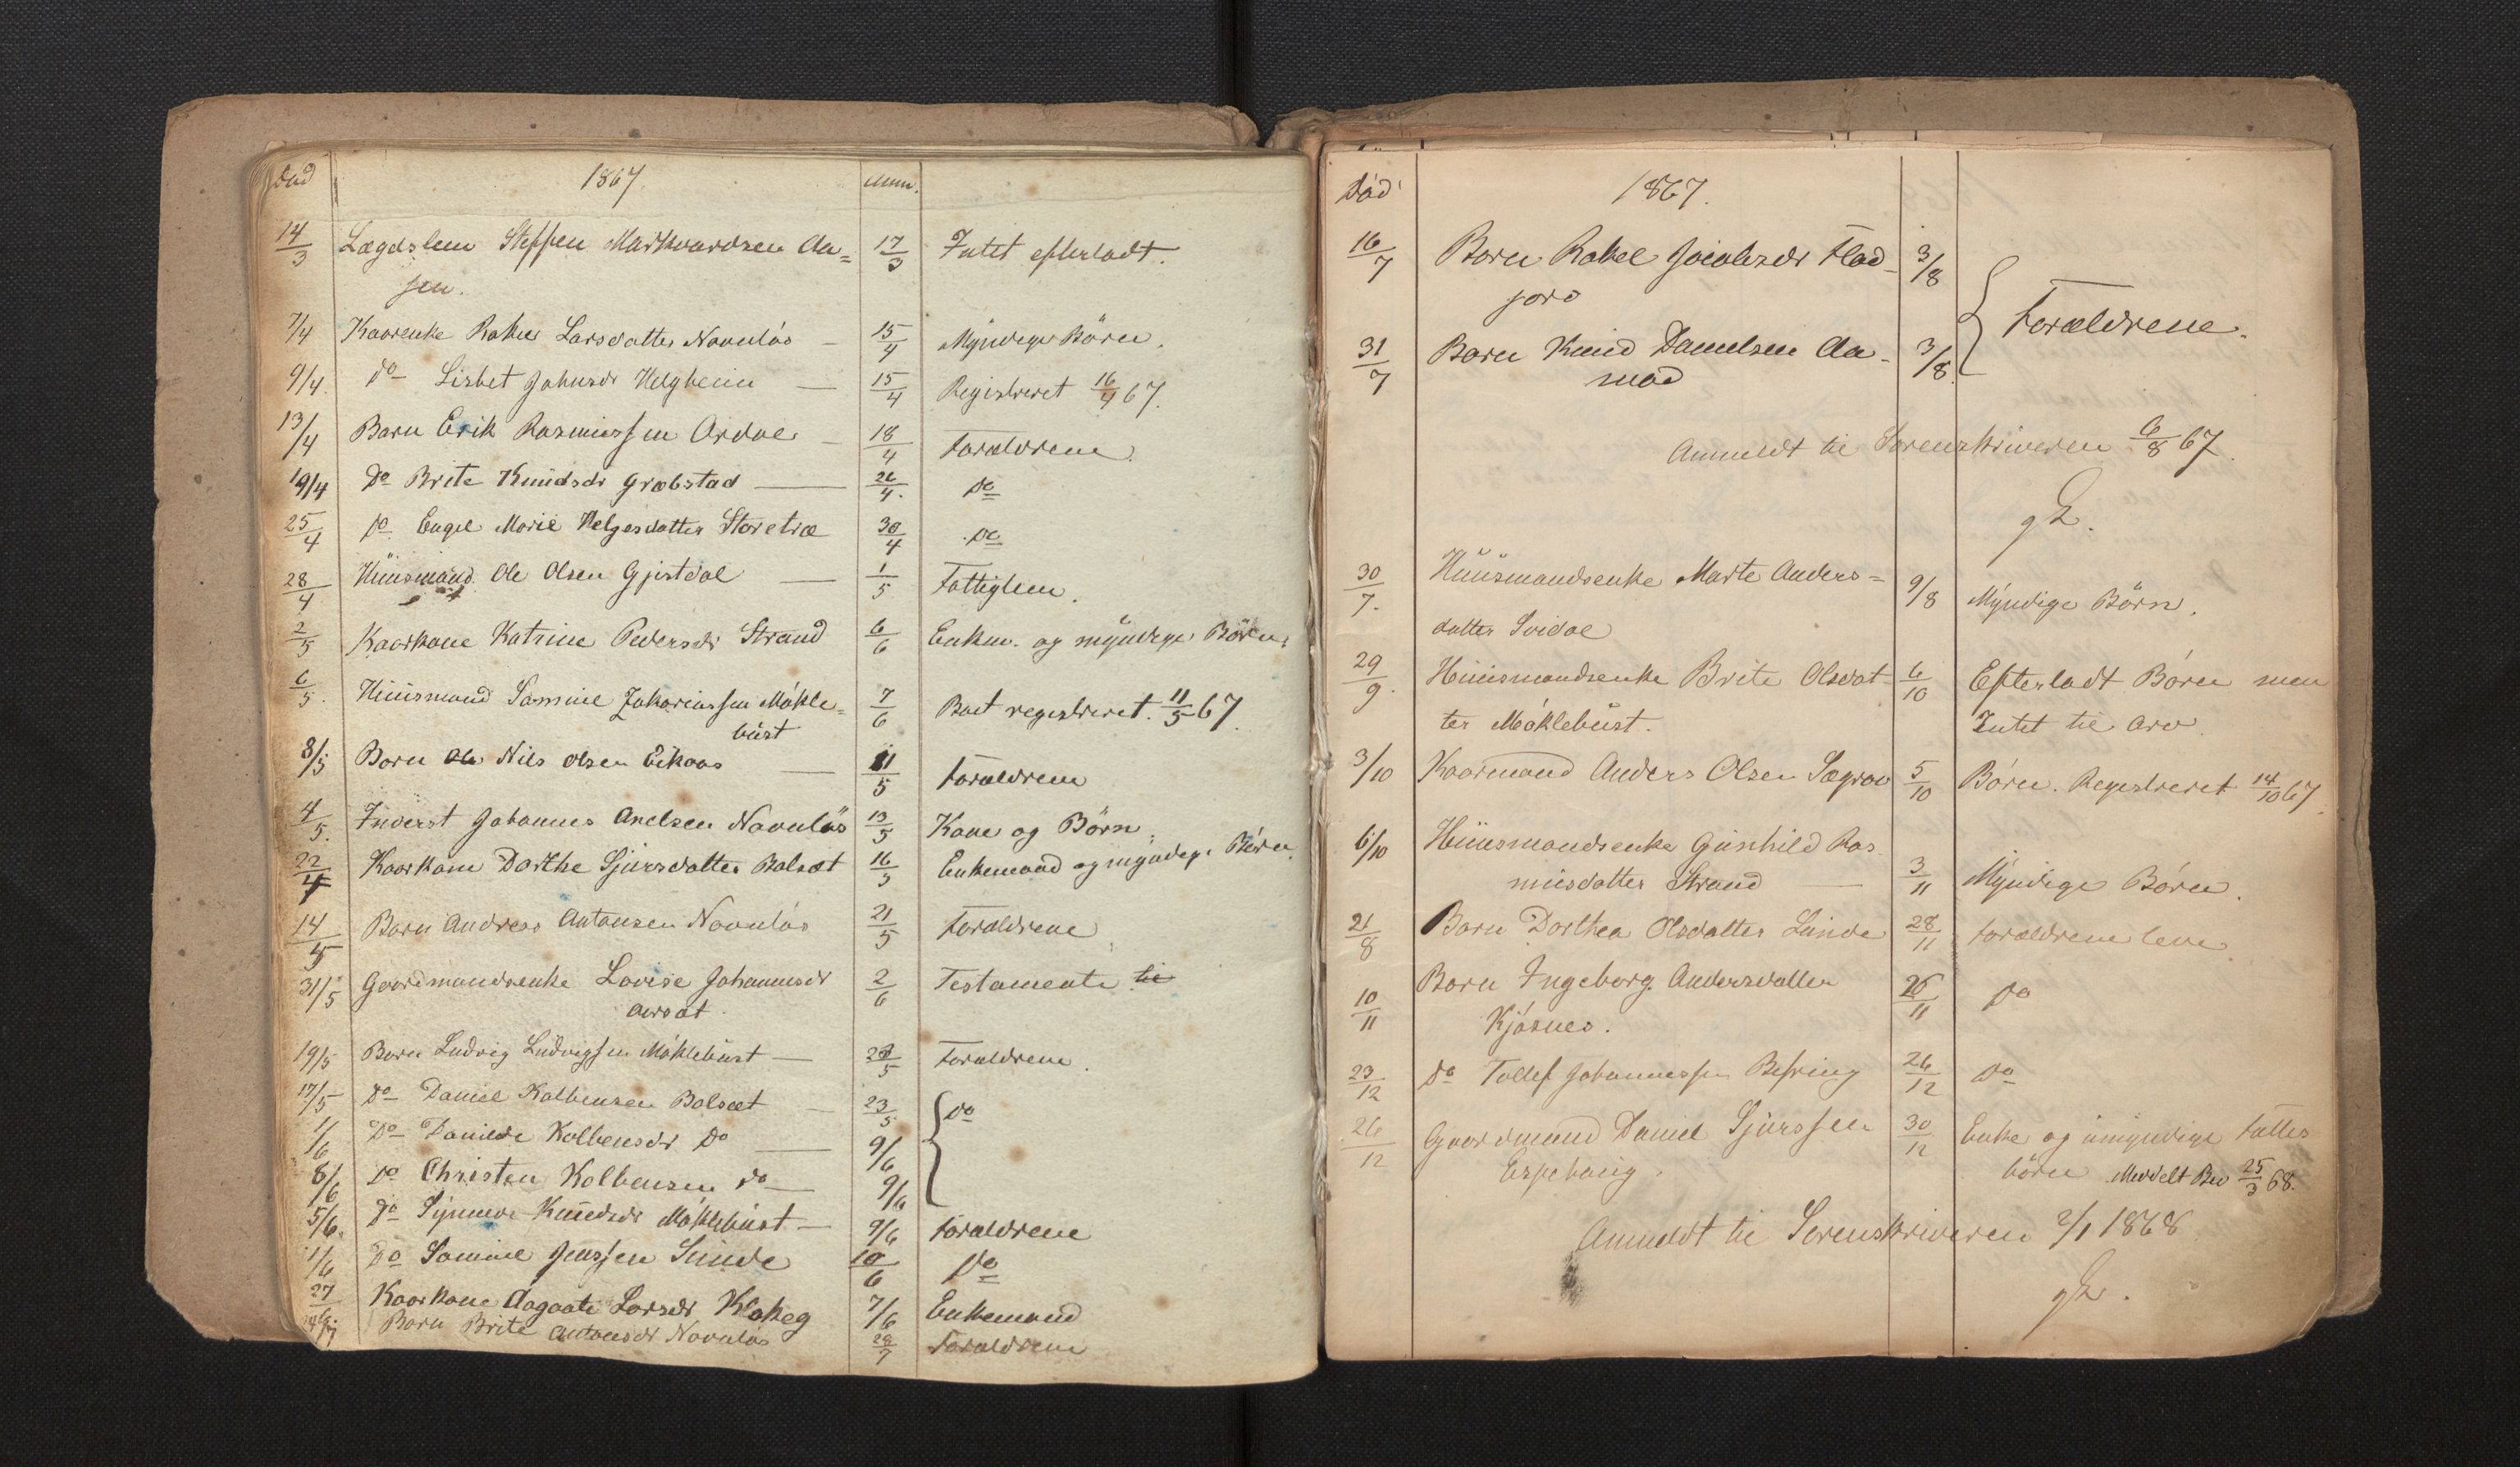 Død 1867 Anm.
14/3 Lægdslem Steffen Markvardsen Aa= 17/3 Intet efterladt.
sen.
7/4 Kaarenke Rakel Larsdatter Navnløs — 15/4 Myndige Börn.
9/4 Do Lisbet Johnsdr Helgheim — 15/4 Registreret 16/4 67.
13/4 Barn Erik Rasmussen Ardal — 18/4 Forældrene.
19/4 Do Brite Knüdsdr Græbstad — 26/4. Do
25/4 Do Engel Marie Helgesdatter Storetræ 30/4 Do
28/4 Hüusmand Ole Olsen Gjestdal — 1/5 Fattiglem.
2/5 Kaarkone Katrine Pedersdr Strand 6/6 Enkm. og mÿndige Börn.
6/5. Hüusmand Samüel Zakariassen Møkle= 7/6 Boet registreret. 11/5 67.
büst
8/5 Barn Ole Nils Olsen Eikaas — 11/5 Forældrene
4/5. Inderst Johannes Axelsen Navnløs 13/5 Kone og Børn.
22/4 Kaarkone Dorthe Sjürsdatter Bolsæt 16/5 Enkemand og mÿndige Børn.
14/5 Barn Andreas Antonsen Navnløs 21/5 Forældrene
31/5 Gaardmandsenke Lovise Johannesdr 2/6 Testamente til
Aarsæt.
19/5 Barn Ludvig Lüdvigsen Møklebüst — 23/5 Forældrene.
17/5 Do Daniel Kolbensen Bolsæt — 23/5 Do
1/6 Do Danilde Kolbensdr Do — 9/6
8/6 Do Christen Kolbensen Do — 9/6
5/6. Do Synneve Knüdsdr Møklebüst — 9/6 Forældrene
1/6 Do Samüel Jenssen Sünde 10/6 Do
27/6 Kaarkone Aagaate Larsdr Klakeg 7/6 Enkemand
Barn Brite Antonsdr Navnløs 28/7 Forældrene
Død 1867.
16/7 Barn Rakel Jacobsdr Flad- 3/8
jord
Forældrene.
31/7 Barn Knüd Danielsen Aa- 3/8.
mod
Anmeldt til Sorenskriveren 6/8 67.
30/7. Hüusmandsenke Marte Anders= 9/8 Mÿndige Börn.
datter Svidal
29/9. Hüusmandsenke Brite Olsdat- 6/10 Efterladt Børn men
ter Møklebüst. Intet til Arv.
3/10 Kaarmand Anders Olsen Sægrov 5/10 Børn. Registreret 14/10 67.
6/10 Hüusmandsenke Günhild Ras-
müsdatter Strand — 3/11 Mÿndige Børn.
21/8 Barn Dorthea Olsdatter Sünde 28/11 Forældrene leve.
Barn Ingeborg Andersdatter
10/11 Kjøsnes. 26/11 Do
23/12 Do Tollef Johannessen Befring 26/12 Do
26/12 Gaardmand Daniel Sjurssen 30/12 Enke og ümyndige fælles
Espehaüg. børn. Meddelt Bev 25/3 68.
Anmeldt til Sorenskriveren 2/1 1868